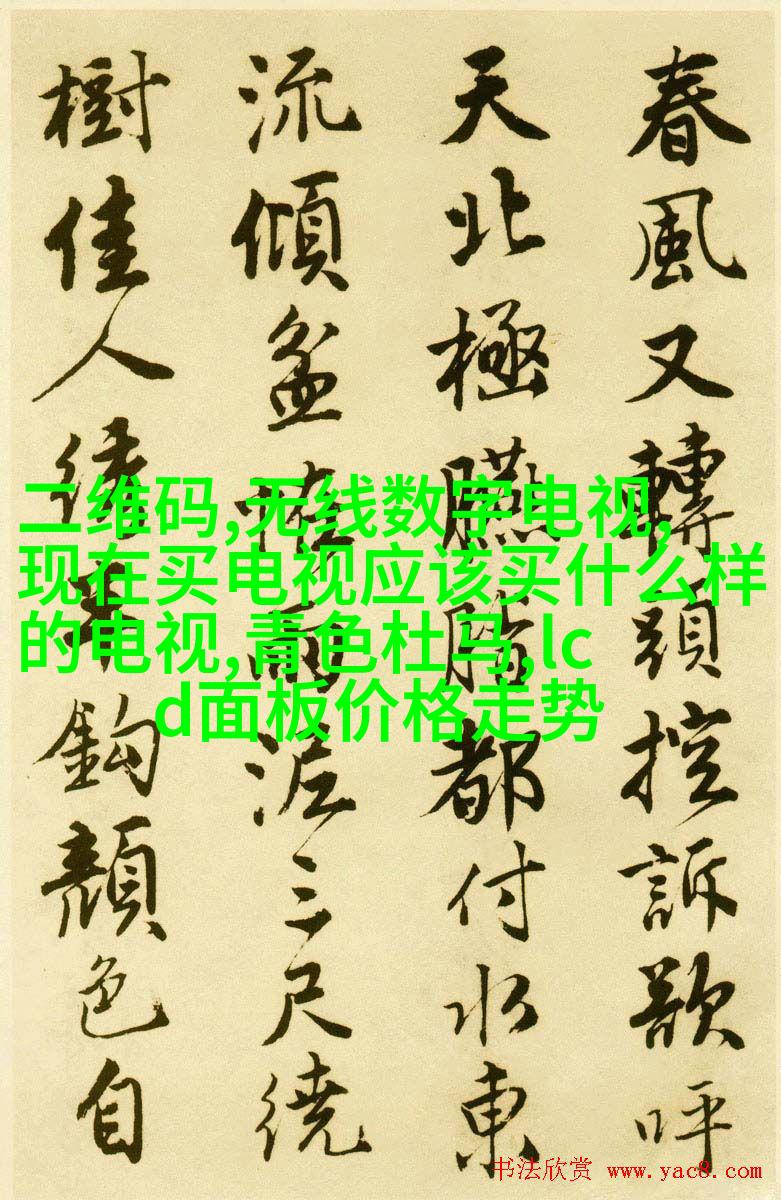 春風又轉頭控訴欲呼
天北極臙脂都付水東
流傾盆怪雨泥三尺繞
樹佳人繡半鈎顏色自
二维码,无线数字电视,
现在买电视应该买什么样
的电视,青色杜马,lc
d面板价格走势
书法欣赏 www.yac8.com